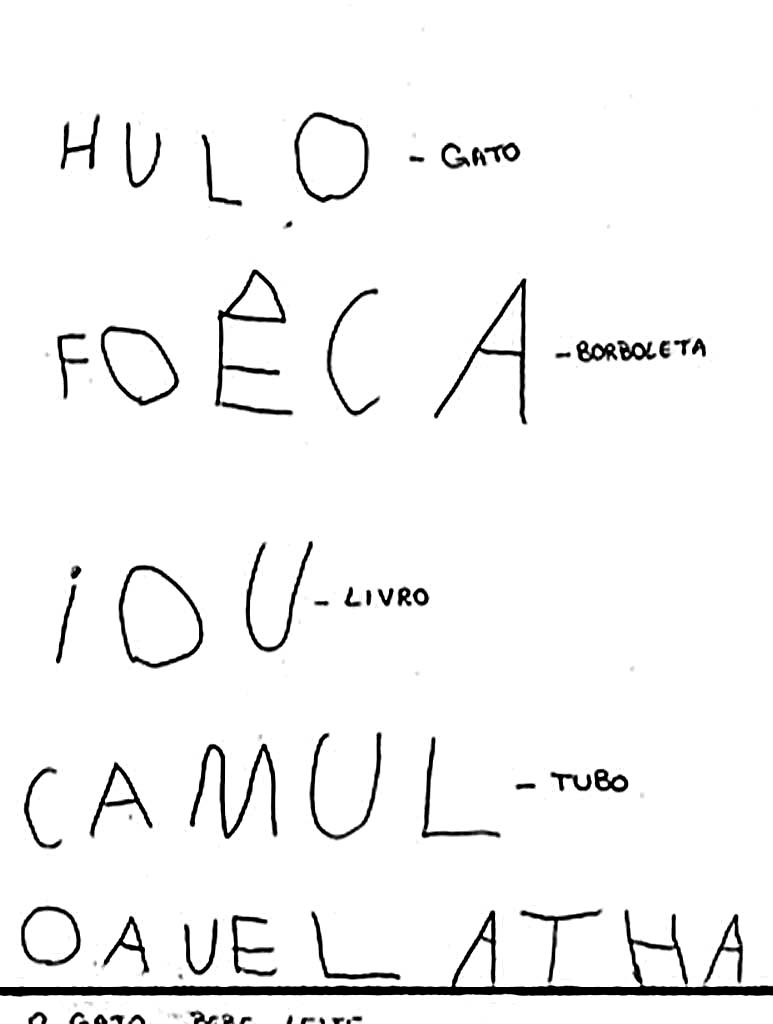 HULO - GATO
FOÊCA - BORBOLETA
iOU - LIVRO
CAMUL - TUBO
OAUEL ATHA
O GATO BEBE LEITE